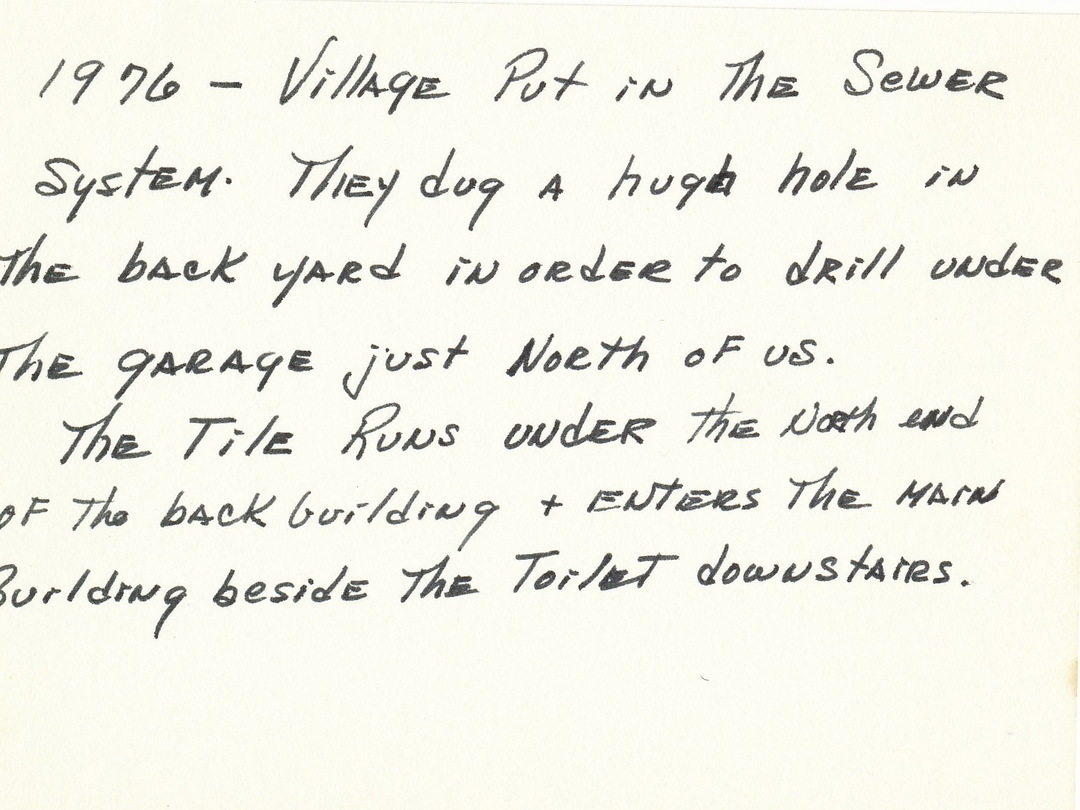 1976 - Village Put in The Sewer
System. They dug a hugh hole in
the back yard in order to drill under
the garage just North of us.
The Tile Runs under the North end
of the back building + enters the main
Building beside the Toilet downstairs.